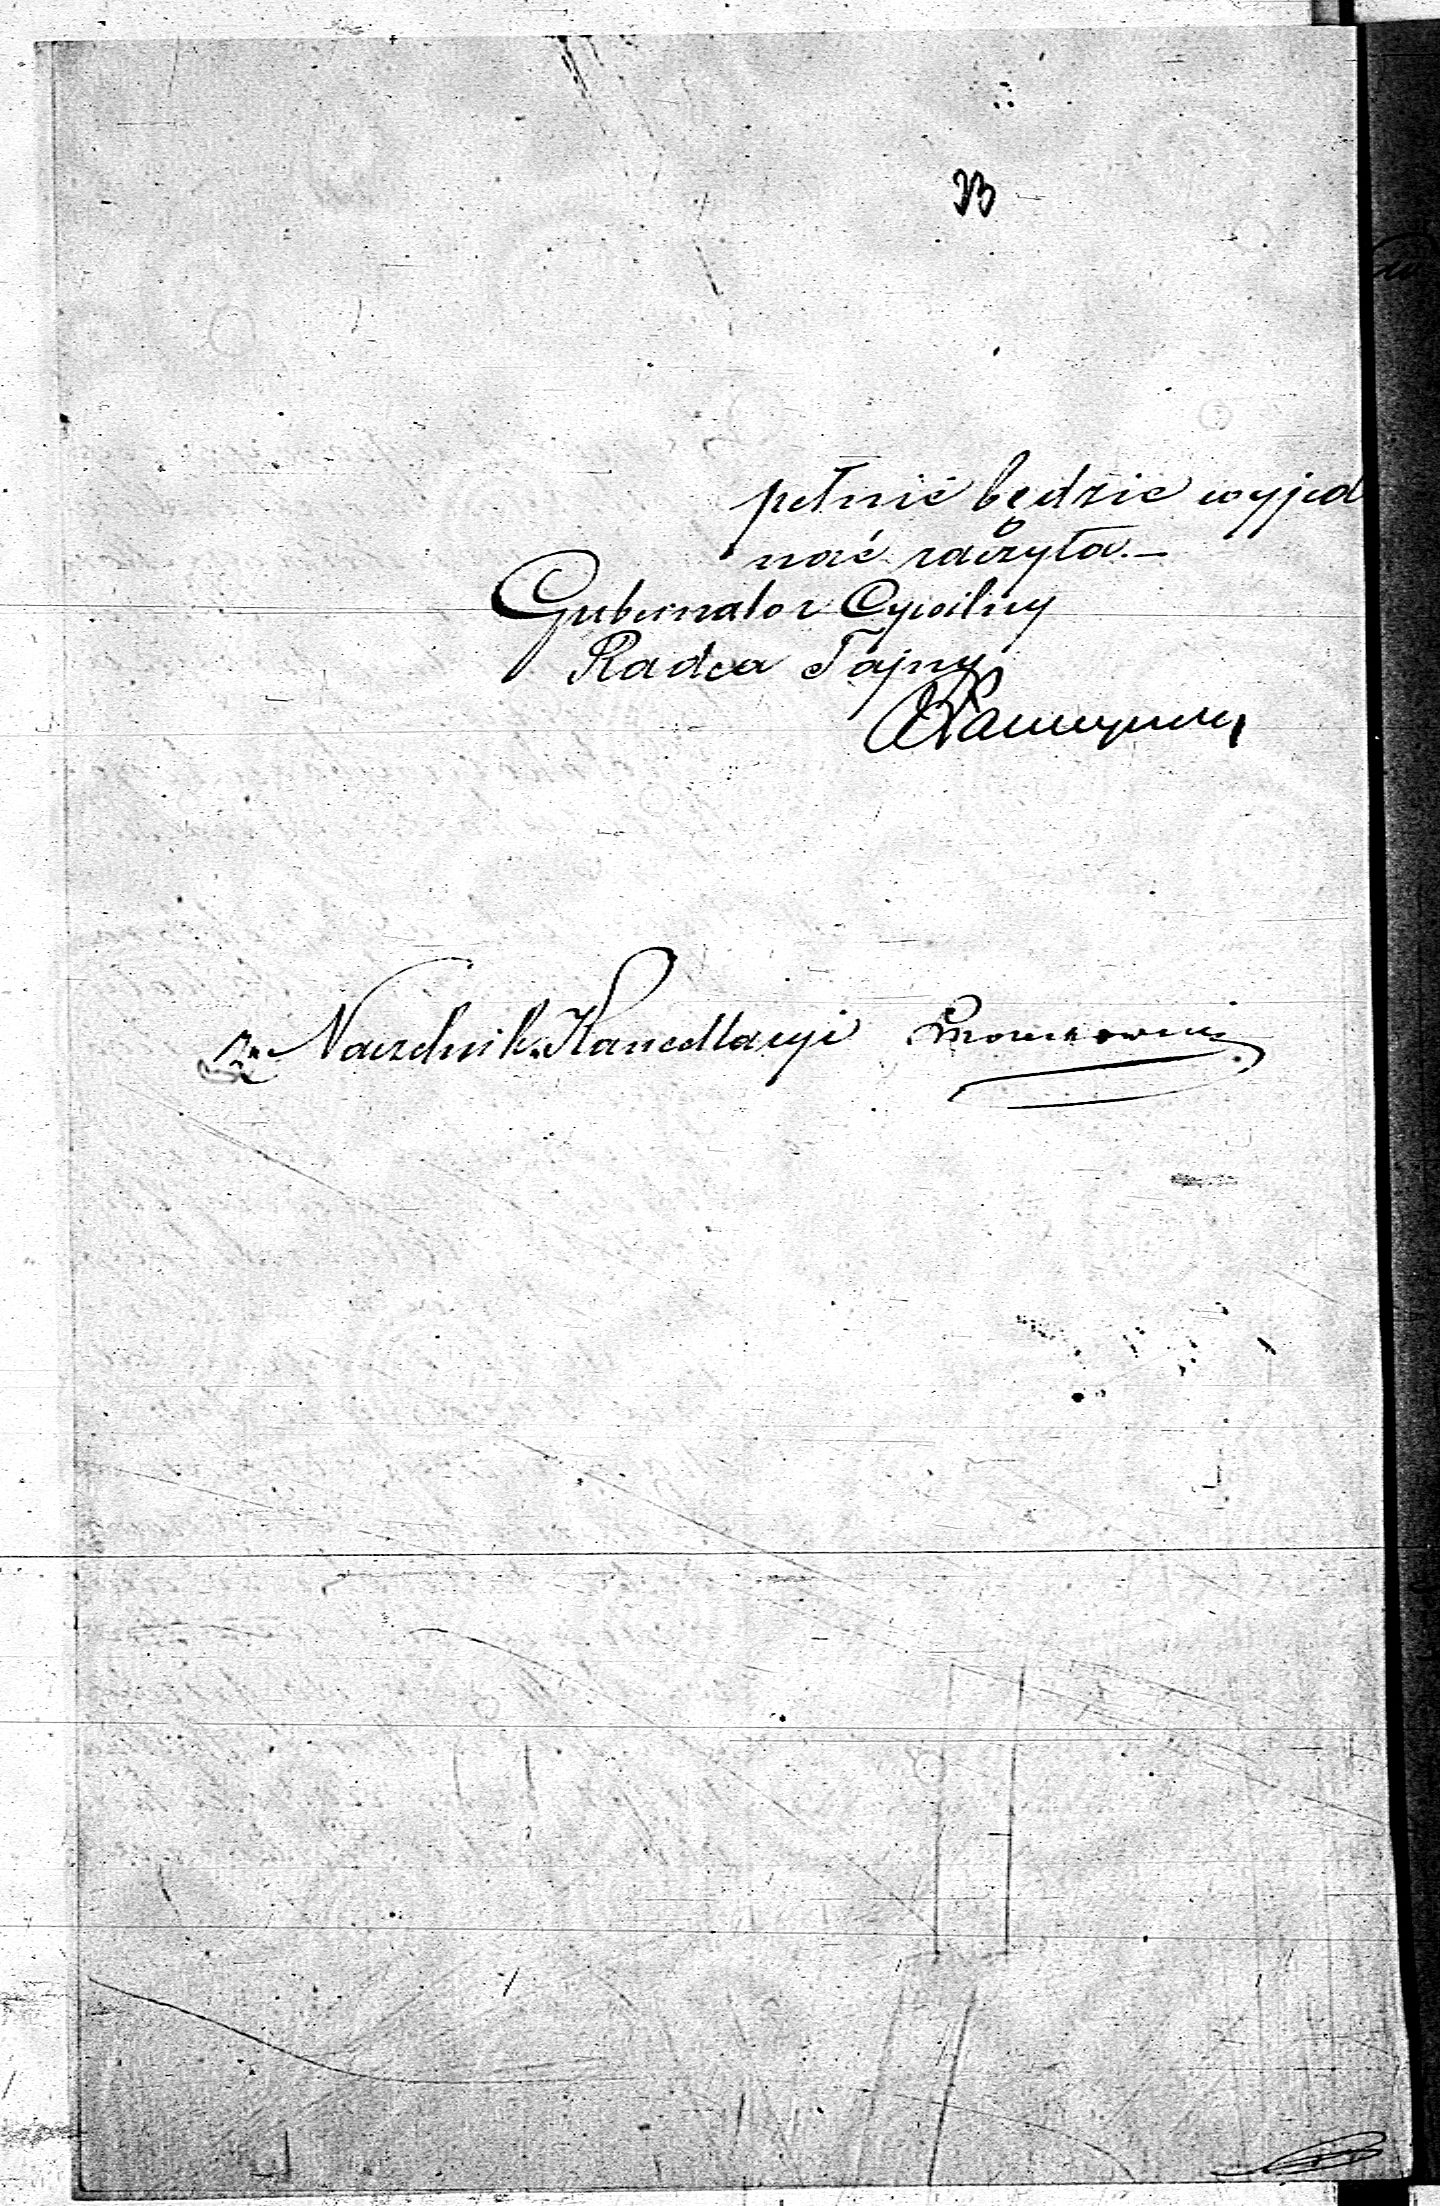 33
pełnić będzie wyjed
nać raczyła.—
Gubernator Cywilny
Radca Tajny
Naczelnik Kancellaryi